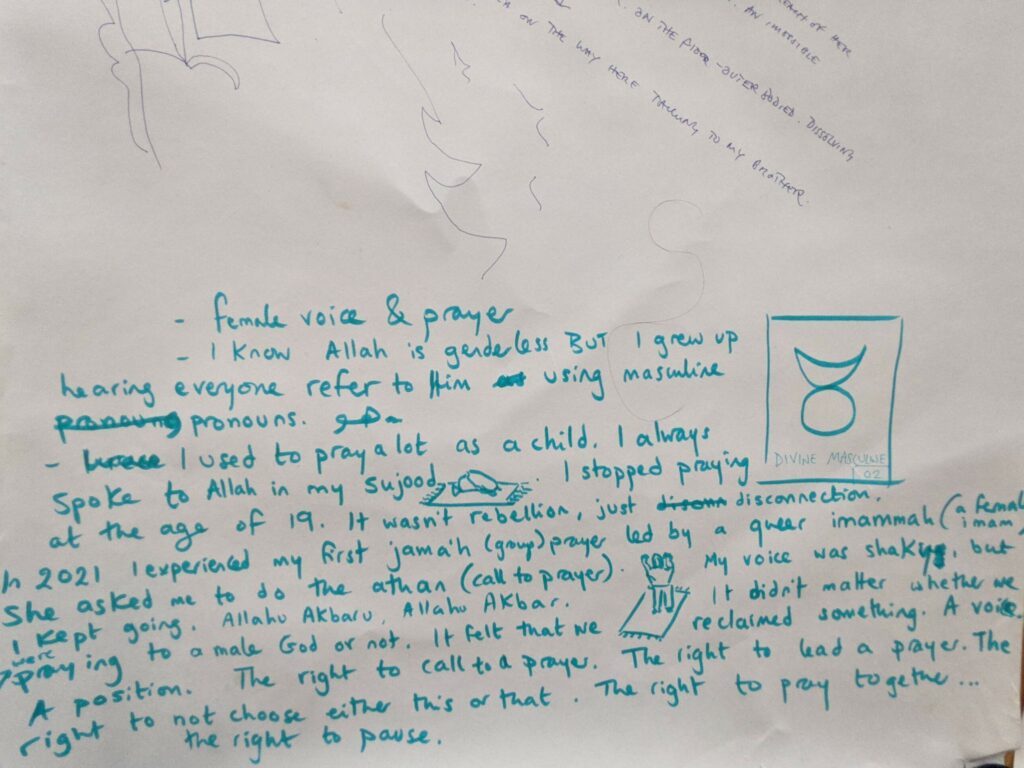 AN IMPOSSIBLE
ON THE FLOOR - OUTER BODIED. DISSOLVING
ON THE WAY HERE TALKING TO MY BROTHER.
- female voice & prayer
- I know Allah is genderless BUT I grew up
hearing everyone refer to Him using masculine
pronouns.
- I used to pray a lot as a child. I always
spoke to Allah in my sujood. I stopped praying
at the age of 19. It wasn't rebellion, just disconnection.
In 2021 I experienced my first jama'h (group) prayer led by a queer imammah (a female imam)
She asked me to do the athan (call to prayer). My voice was shaky, but
I kept going. Allahu Akbaru, Allahu Akbar. It didn't matter whether we
were praying to a male God or not. It felt that we reclaimed something. A voice.
A position. The right to call to a prayer. The right to lead a prayer. The
right to not choose either this or that. The right to pray together...
the right to pause.
DIVINE MASCULINE
02